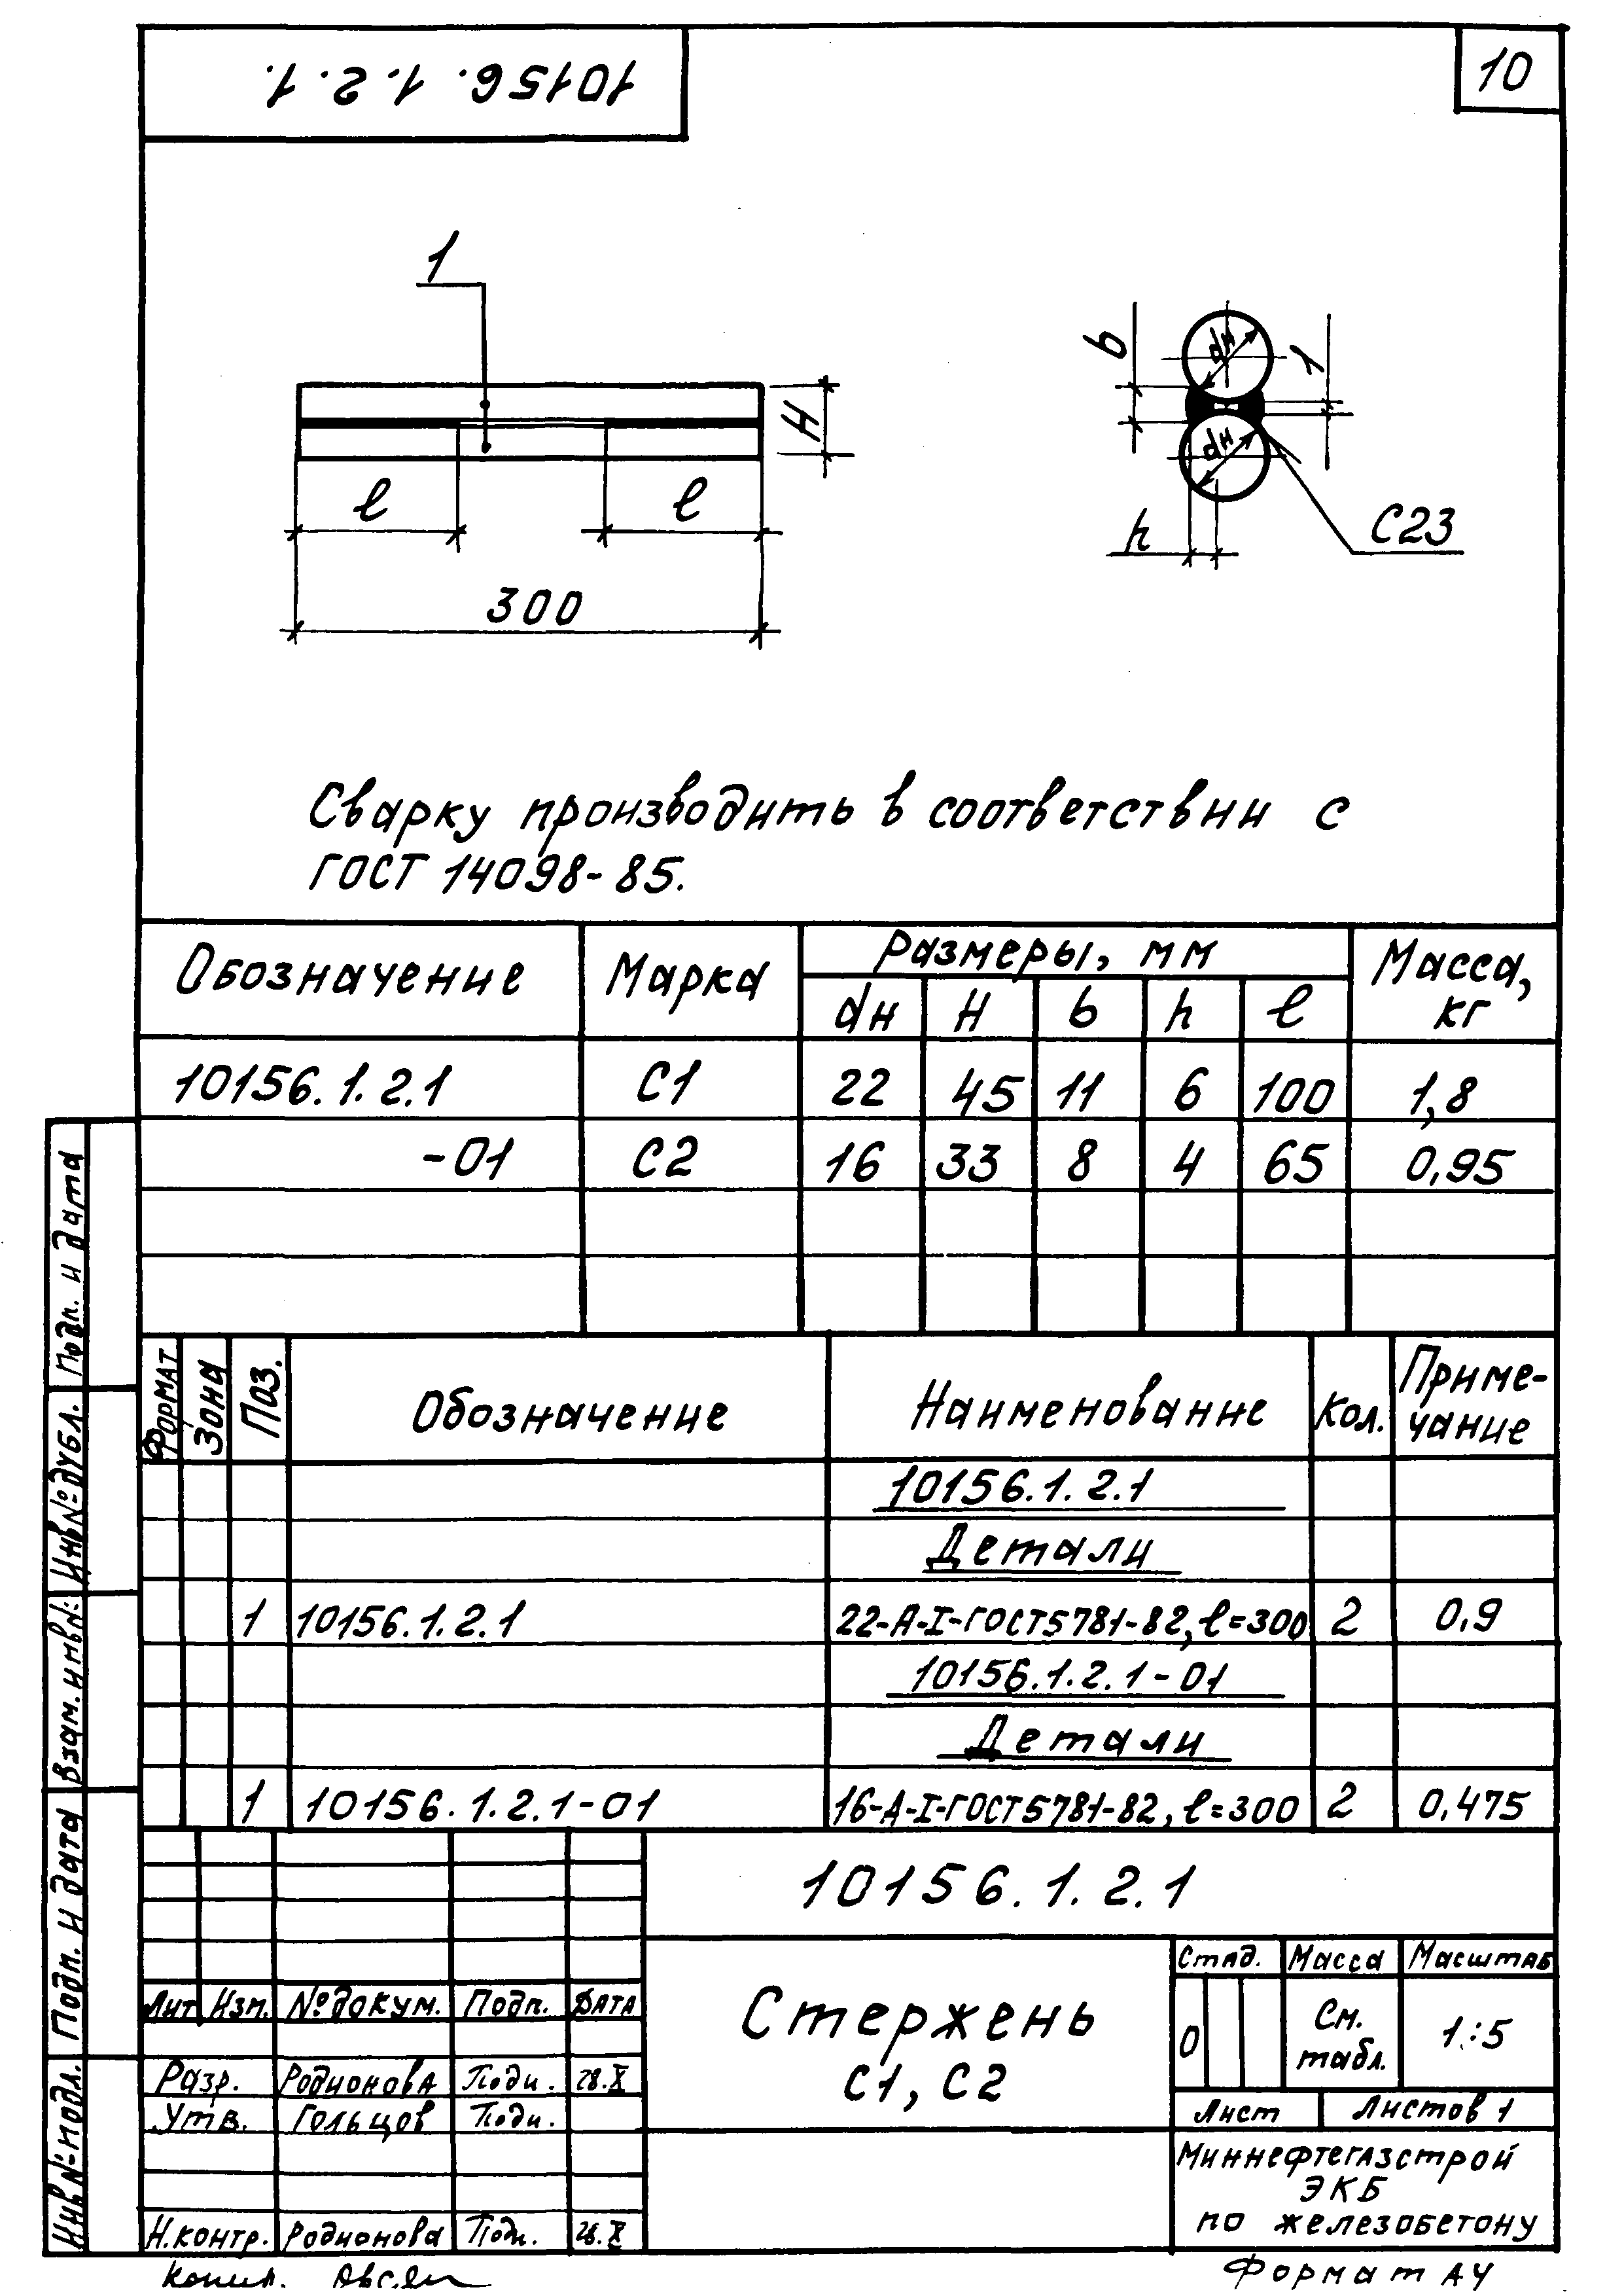 10156.1.2.1.
10
1
H
ℓ
ℓ
300
b
dн
1
dн
h
С23
Сварку производить в соответствии с
ГОСТ 14098-85.
Обозначение Марка Размеры, мм Масса, кг
dн H b h ℓ
10156.1.2.1 С1 22 45 11 6 100 1,8
-01 С2 16 33 8 4 65 0,95
Формат Зона Поз. Обозначение Наименование Кол. Приме-
чание
10156.1.2.1
Детали
1 10156.1.2.1 22-А-I-ГОСТ5781-82, ℓ=300 2 0,9
10156.1.2.1-01
Детали
1 10156.1.2.1-01 16-А-I-ГОСТ5781-82, ℓ=300 2 0,475
Подп. и дата
Инв№дубл.
Взам.инв№
Подп. и дата
Инв№подл.
10156.1.2.1
Лит Изм. №докум. Подп. Дата
Разр. Родионова Подп. 28.X
Утв. Гольцов Подп.
Н.контр. Родионова Подп. 28.X
Стержень
С1, С2
Стад. Масса Масштаб
0 См.
табл. 1:5
Лист Листов 1
Миннефтегазстрой
ЭКБ
по железобетону
Копир.
Формат А4